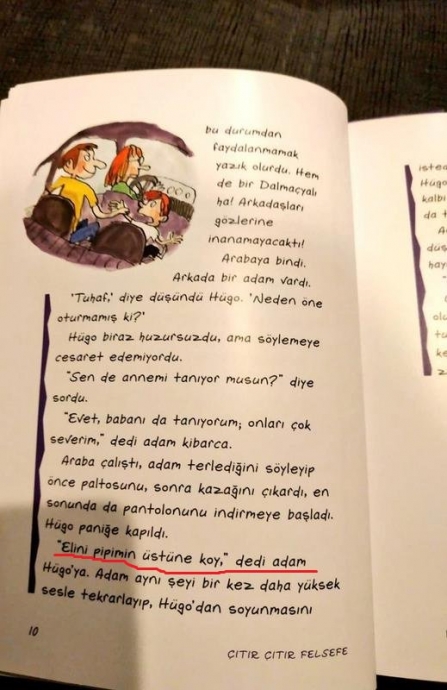 bu durumdan
faydalanmamak
yazık olurdu. Hem
de bir Dalmaçyalı
ha! Arkadaşları
gözlerine
inanamayacaktı!
Arabaya bindi.
Arkada bir adam vardı.
'Tuhaf,' diye düşündü Hügo. 'Neden öne
oturmamış ki?'
Hügo biraz huzursuzdu, ama söylemeye
cesaret edemiyordu.
"Sen de annemi tanıyor musun?" diye
sordu.
"Evet, babanı da tanıyorum; onları çok
severim," dedi adam kibarca.
Araba çalıştı, adam terlediğini söyleyip
önce paltosunu, sonra kazağını çıkardı, en
sonunda da pantolonunu indirmeye başladı.
Hügo paniğe kapıldı.
"Elini pipimin üstüne koy," dedi adam
Hügo'ya. Adam aynı şeyi bir kez daha yüksek
sesle tekrarlayıp, Hügo'dan soyunmasını
10
ÇITIR ÇITIR FELSEFE